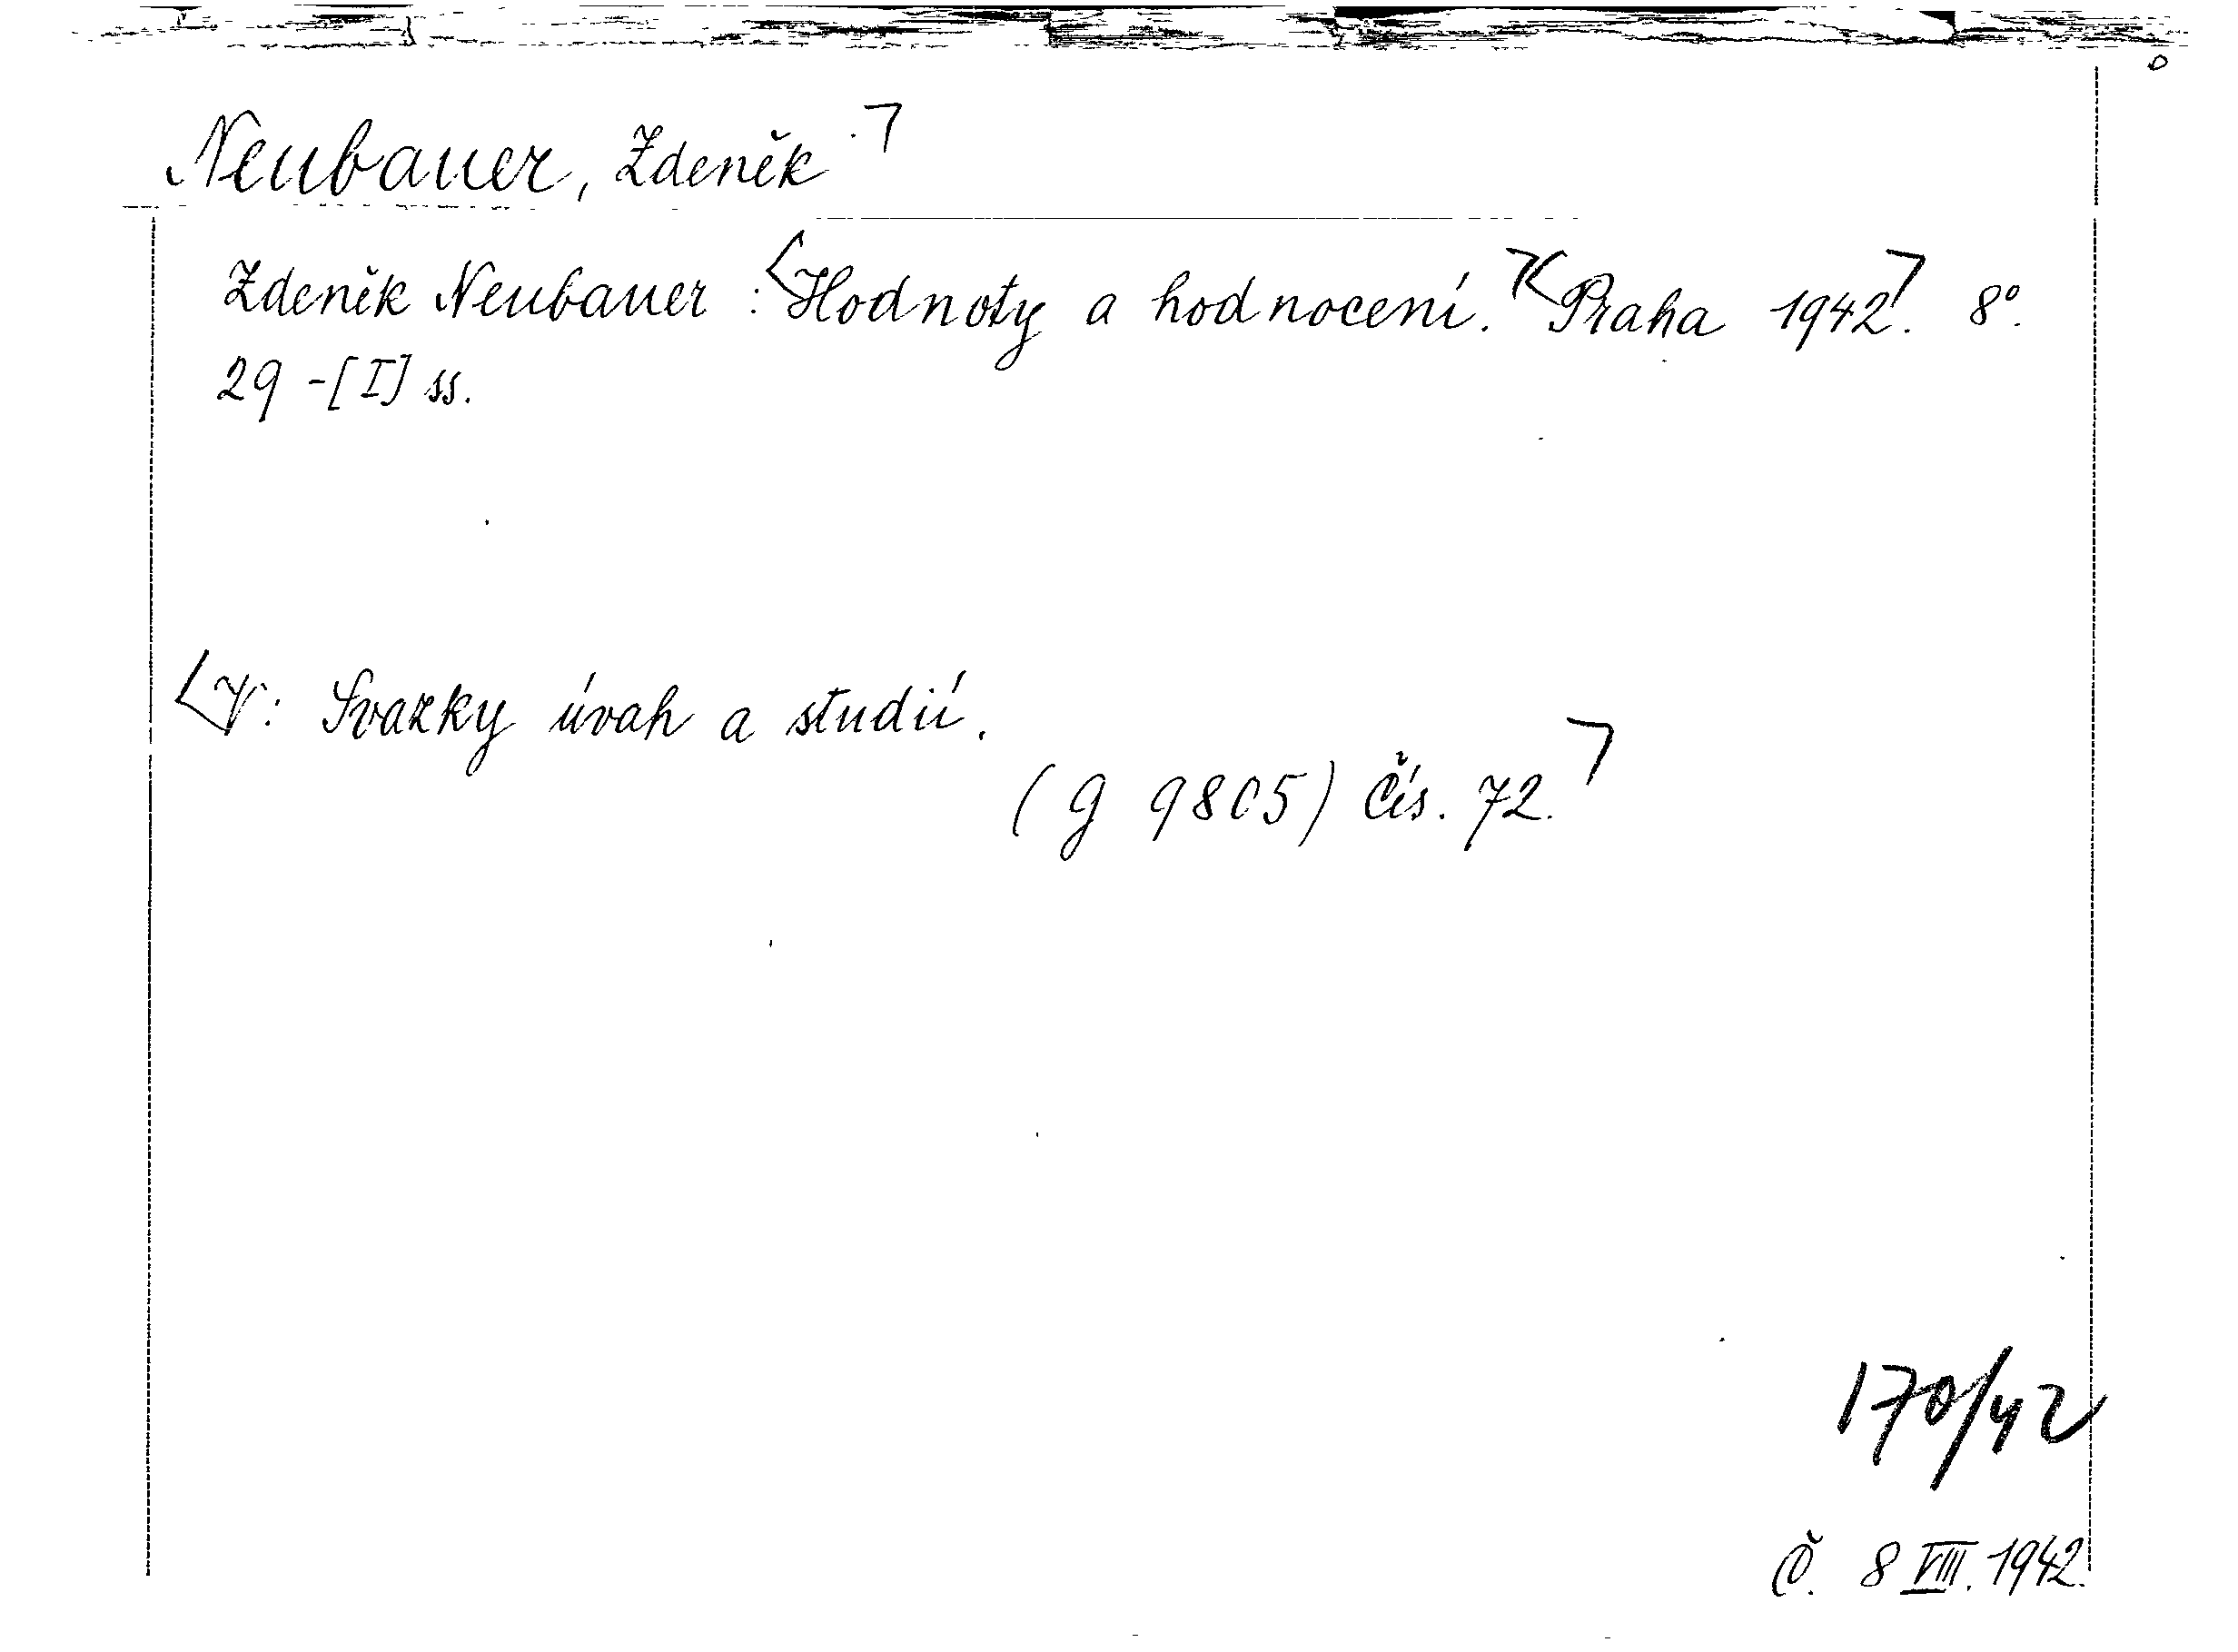 Neubauer, Zdeněk
Zdeněk Neubauer : Hodnoty a hodnocení. Praha 1942. 8°.
29 -[I] ss.
V: Svazky úvah a studií.
(g 9805) Čís. 72.
170/42
Č. 8 VIII. 1942.